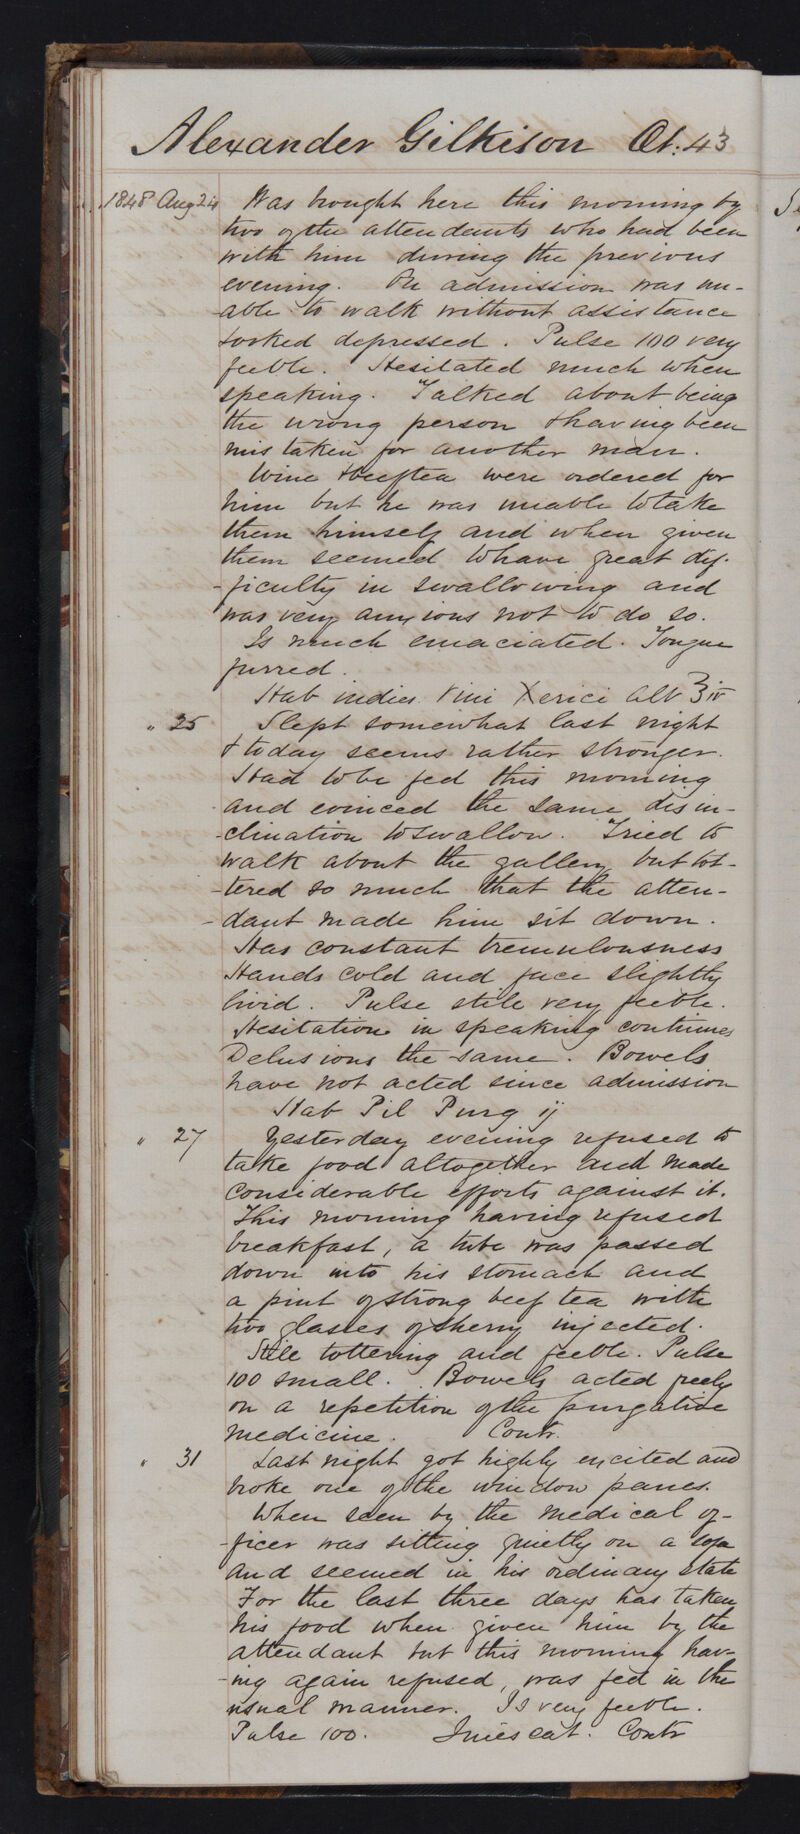 Alexander Gilkison Æt. 43
1848 Aug 24 Was brought here this morning by
two of the attendants who had been
with him during the previous
evening. On admission was un-
-able to walk without assistance
looked depressed. Pulse 100 very
feeble. Hesitated much when
speaking. Talked about being
the wrong person & having been
mistaken for another man.
Wine & beeftea were ordered for
him but he was unable to take
them himself and when given
them seemed to have great dif-
-ficulty in swallowing and
was very anxious not to do so.
Is much emaciated. Tongue
furred.
Hab indies Vini Xerici alb ℥iv
" 25 Slept somewhat last night
& today seems rather stronger.
Had to be fed this morning
and evinced the same disin-
-clination to swallow. Tried to
walk about the gallery but tot-
-tered so much that the atten-
-dant made him sit down.
Has constant tremulousness
Hands cold and face slightly
livid. Pulse still very feeble.
Hesitation in speaking continues
Delusions the same. Bowels
have not acted since admission
Hab Pil Purg ij
" 27 Yesterday evening refused to
take food altogether and made
considerable efforts against it.
This morning having refused
breakfast, a tube was passed
down into his stomach and
a pint of strong beef tea with
two glasses of sherry injected.
Still tottering and feeble. Pulse
100 small. Bowels acted freely
on a repetition of the purgative
medicine. Contr.
" 31 Last night got highly excited and
broke one of the window panes.
When seen by the medical of-
-ficer was sitting quietly on a sofa
and seemed in his ordinary state
For the last three days has taken
his food when given him by the
attendant but this morning hav-
-ing again refused, was fed in the
usual manner. Is very feeble.
Pulse 100. Contr